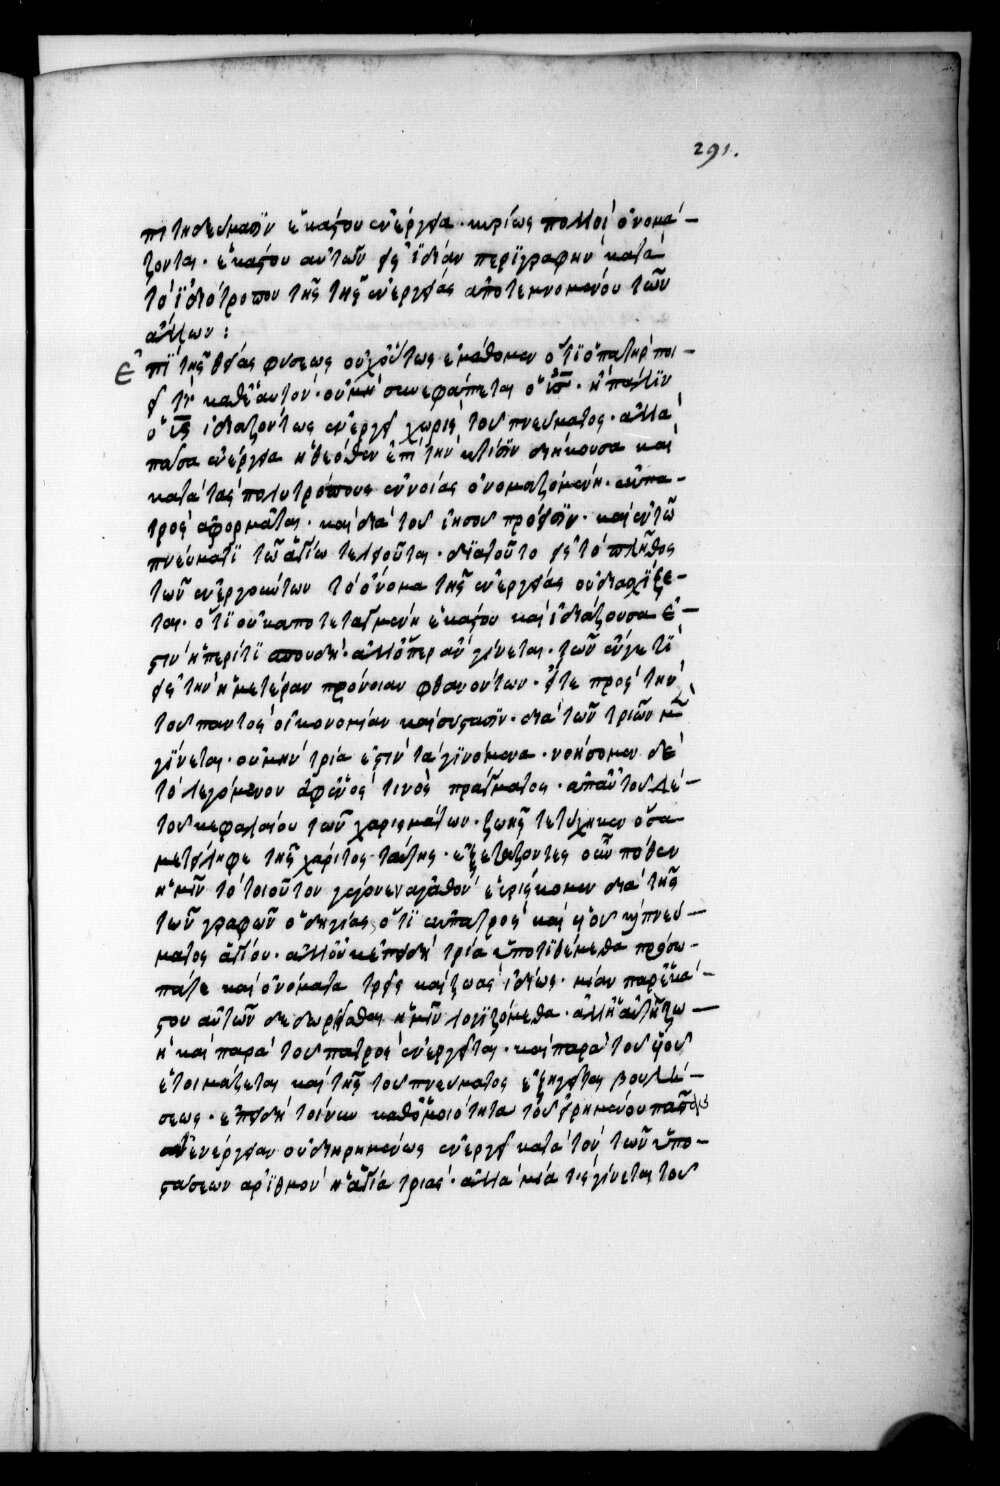 291.
πιτηδεύμασϊν ἑκάστου ἐνέργεια · κυρίως πολλοὶ ὀνομά-
ζονται · ἑκάστου αὐτῶν εἰς ἰδίαν περιγραφὴν κατὰ
τὸ ἰδιότροπον τῆς τῆς ἐνεργείας ἀποτεμνομένου τῶν
ἄλλων :
Ἐπὶ τῆς θείας φύσεως οὐχ οὕτως ἐμάθομεν ὅτι ὁ πατὴρ ποι-
εῖ τι καθ' ἑαυτόν · οὗ μὴ συνεφάπτεται ὁ υἱς · ἢ πάλιν
ὁ υς ἰδιαζόντως ἐνεργεῖ χωρὶς τοῦ πνεύματος · ἀλλὰ
πᾶσα ἐνέργεια ἡ θεόθεν ἐπὶ τὴν κτίσιν διήκουσα καὶ
κατὰ τὰς πολυτρόπους ἐννοίας ὀνομαζομένη · ἐκ πα-
τρὸς ἀφορμᾶται · καὶ διὰ τοῦ ἱησοῦ πρόεισϊν · καὶ ἐν τῷ
πνεύματϊ τῷ ἁγίῳ τελειοῦται · διὰ τοῦτο εἰς τὸ πλῆθος
τῶν ἐνεργούντων τὸ ὄνομα τῆς ἐνεργείας οὐ διασχίζε-
ται · ὅτι οὐκ ἀποτεταγμένη ἑκάστου καὶ ἰδιάζουσα ἐ-
στιν ἡ περί τι σπουδή · ἀλλ' ὅπερ ἂν γίνεται · τῶν εἴγε τι
εἰς τὴν ἡμετέραν πρόνοιαν φθανόντων · εἴτε πρὸς τὴν
τοῦ παντὸς οἰκονομίαν καὶ σύστασϊν · διὰ τῶν τριῶν μὲν
γίνεται · οὐ μὴν τρία ἐστὶν τὰ γινόμενα · νοήσομεν δὲ
τὸ λεγόμενον ἀφ' ἑνός τινὸς πράγματος · ἀπ' αὐτοῦ λέ-
τοῦ κεφαλαίου τῶν χαρισμάτων · ζωῆς τετύχηκεν ὅσα
μετείληφε τῆς χάριτος ταύτης · ἐξετάζοντες οὖν πόθεν
ἡμῖν τὸ τοιοῦτον γέγονεν ἀγαθὸν εὑρίσκομεν διὰ τῆς
τῶν γραφῶν ὁδηγίας, ὅτι ἐκ πατρὸς καὶ υἱοῦ καὶ πνεύ-
ματος ἁγίου · ἀλλ' οὐκ ἐπειδὴ τρία ὑποτιθέμεθα πρόσω-
πά τε καὶ ὀνόματα τρεῖς καὶ ζωὰς ἰδίως · μίαν παρ' ἑκά-
στου αὐτῶν δεδωρῆσθαι ἡμῖν λογιζόμεθα · ἀλλ' ἡ αὐτὴ ζω-
ὴ καὶ παρὰ τοῦ πατρὸς ἐνεργεῖται · καὶ παρὰ τοῦ υἱοῦ
ἑτοιμάζεται καὶ τῆς τοῦ πνεύματος ἐξήρτηται βουλή-
σεως · ἐπειδὴ τοίνυν καθ' ὁμοιότητα τοῦ εἰρημένου πᾶσαν
ἐνέργειαν οὐ διῃρημένως ἐνεργεῖ κατὰ τὸν τῶν ὑπο-
στάσεων ἀριθμὸν ἡ ἁγία τριάς · ἀλλὰ μία τις γίνεται τοῦ